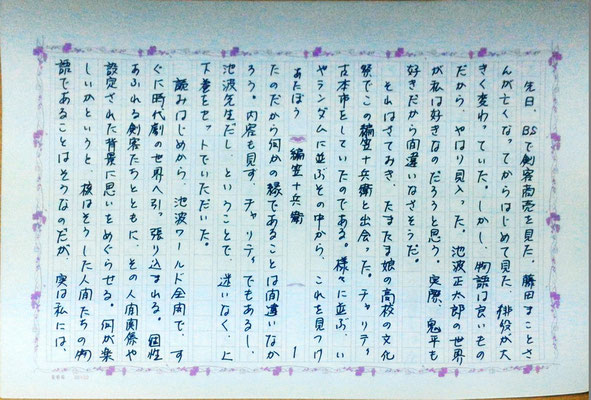 先日、BSで剣客商売を見た。藤田まことさ
んが亡くなってからはじめて見た。俳役が大
きく変わっていた。しかし、物語は良いもの
だから、やはり見入った。池波正太郎の世界
が私は好きなのだろうと思う。実際、鬼平も
好きだから間違いなさそうだ。
それはさておき、たまたま娘の高校の文化
祭でこの編笠十兵衛と出会った。チャリティ
古本市をしていたのである。様々に並ぶ、い
やランダムに並ぶその中から、これを見つけ
あたぼう 編笠十兵衛 1
たのだから何かの縁であることは間違いなか
ろう。内容も見ず、チャリティでもあるし、
池波先生だし、ということで、迷いなく、上
下巻をセットでいただいた。
読みはじめから、池波ワールド全開で、す
ぐに時代劇の世界へ引っ張り込まれる。個性
あふれる剣客たちとともに、その人間関係や
設定された背景に思いをめぐらせる。何が楽
しいかというと、核はそうした人間たちの物
語であることはそうなのだが、実は私には、